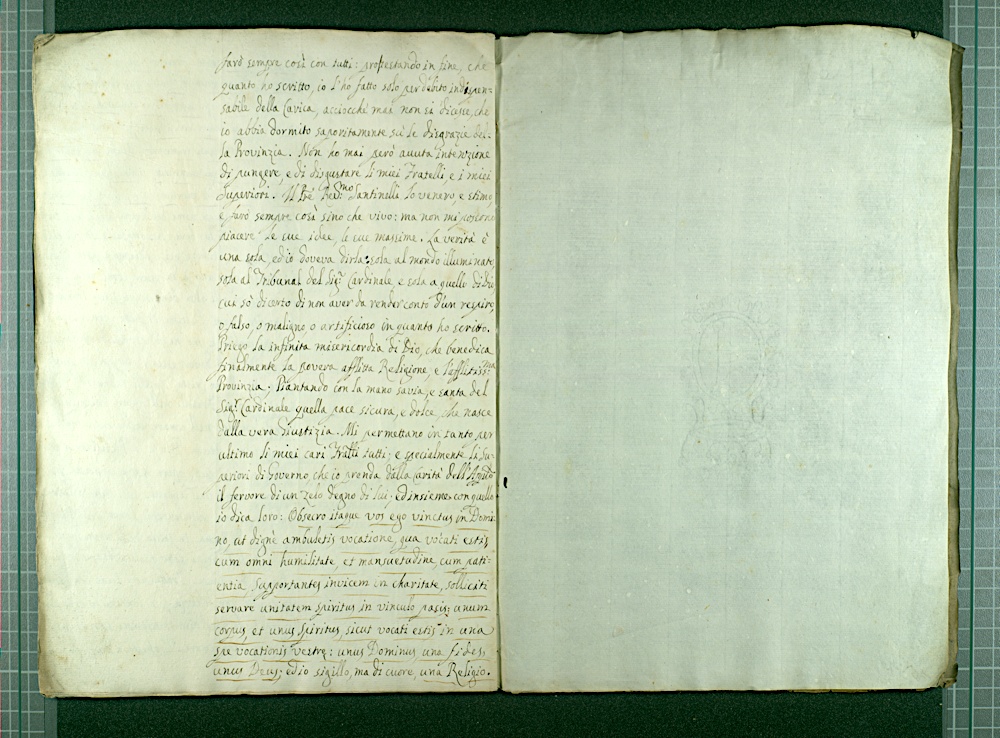 farò sempre così con tutti: protestando in fine, che
quanto ho scritto, io l'hò fatto solo per debito indispen-
sabile della Carica, acciocchè mai non si dicesse, che
io abbia dormito saporitamente sù le disgrazie del-
la Provinzia. Non ho mai però avuta intenzione
di pungere, e di disgustare li miei Fratelli, e i miei
Superiori. Il Pre Revmo Santinelli lo venero, e stimo,
e farò sempre così sino che vivo: ma non mi possono
piacere le sue idee, le sue massime. La verità è
una sola, ed io doveva dirla: sola al mondo illuminato,
sola al Tribunal del Sigr Cardinale, e sola a quello di Dio
cui sò di certo di non aver da render conto d'un respiro,
o falso, o maligno o artificioso in quanto ho scritto.
Priego la infinita misericordia di Dio, che benedica
finalmente la povera afflitta Religione, e l'afflitissma
Provinzia; Piantando con la mano savia, e santa del
Sigr Cardinale quella pace sicura, e dolce, che nasce
dalla vera Giustizia. Mi permettano in tanto per
ultimo li miei cari Fratlli tutti, e specialmente li Su-
periori di Governo, che io prenda dalla carità dell'Apsto
il fervore di un zelo degno di lui; ed insieme con quello
io dica loro: Obsecro itaque vos ego vinctus in Domi-
no, ut dignè ambuletis vocatione, qua vocati estis,
cum omni humilitate, et mansuetudine, cum pati-
entia, supportantes invicem in charitate, solliciti
servare unitatem spiritus in vinculo pacis; unum
corpus, et unus Spiritus, sicut vocati estis in una
spe vocationis vestrę: unus Dominus, una fides,
unus Deus; ed io sigillo, ma di cuore, una Religio.